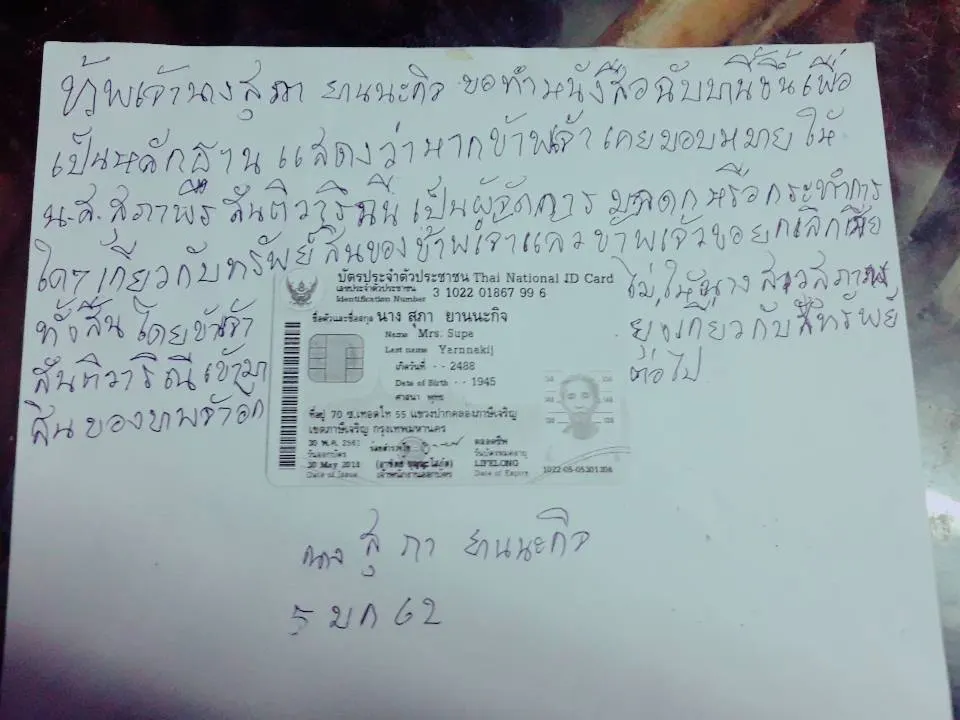 ข้าพเจ้านางสุภา ยานนะกิจ ขอทำหนังสือฉบับบนี้ขึ้นเพื่อ
เป็นหลักฐาน แสดงว่าหากข้าพเจ้า เคยมอบหมายให้
น.ส. สุภาพร สันติวาริณี เป็นผู้จัดการ มรดกหรือกระทำการ
ใดๆ เกี่ยวกับทรัพย์สินของข้าพเจ้าแล้ว ข้าพเจ้าขอยกเลิกเสีย
ทั้งสิ้น โดยข้าพเจ้า ไม่ให้นางสาวสุภาพร
สันติวาริณี เข้ามา ยุ่งเกี่ยวกับทรัพย์
สินของข้าพเจ้าอีก ต่อไป
บัตรประจำตัวประชาชน Thai National ID Card
เลขประจำตัวประชาชน
Identification Number 3 1022 01867 99 6
ชื่อตัวและชื่อสกุล นาง สุภา ยานนะกิจ
Name Mrs. Supa
Last name Yarnnakij
เกิดวันที่ - - 2488
Date of Birth - - 1945
ศาสนา พุทธ
ที่อยู่ 70 ซ.เทอดไท 55 แขวงปากคลองภาษีเจริญ
เขตภาษีเจริญ กรุงเทพมหานคร
30 พ.ค. 2561
วันออกบัตร
30 May 2018
Date of Issue
เจ้าพนักงานออกบัตร
ตลอดชีพ
วันบัตรหมดอายุ
LIFELONG
Date of Expiry
นาง สุภา ยานนะกิจ
5 มค 62